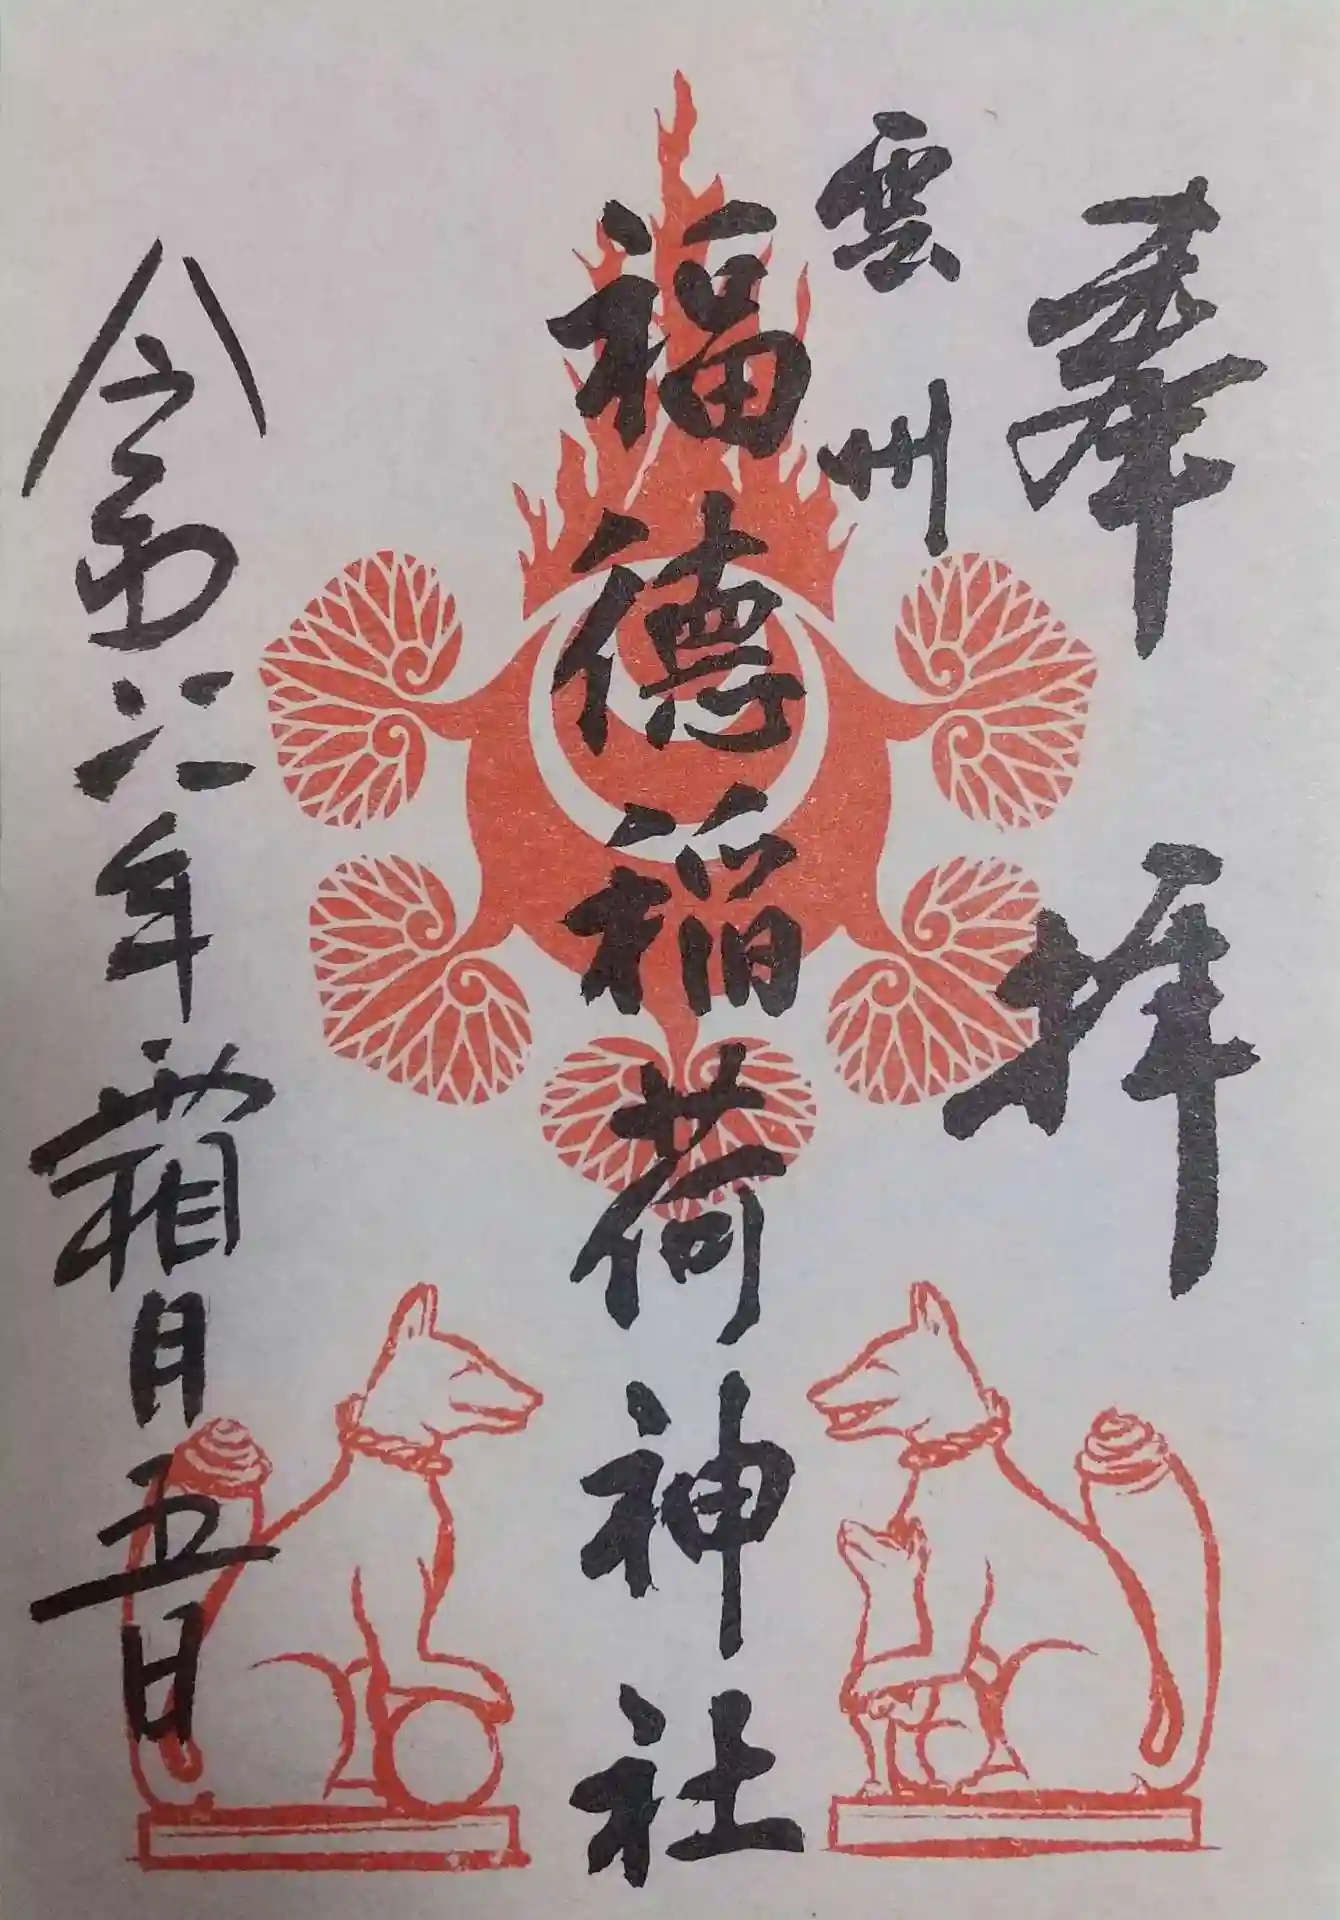 奉拝
雲州
福徳稲荷神社
令和六年霜月五日